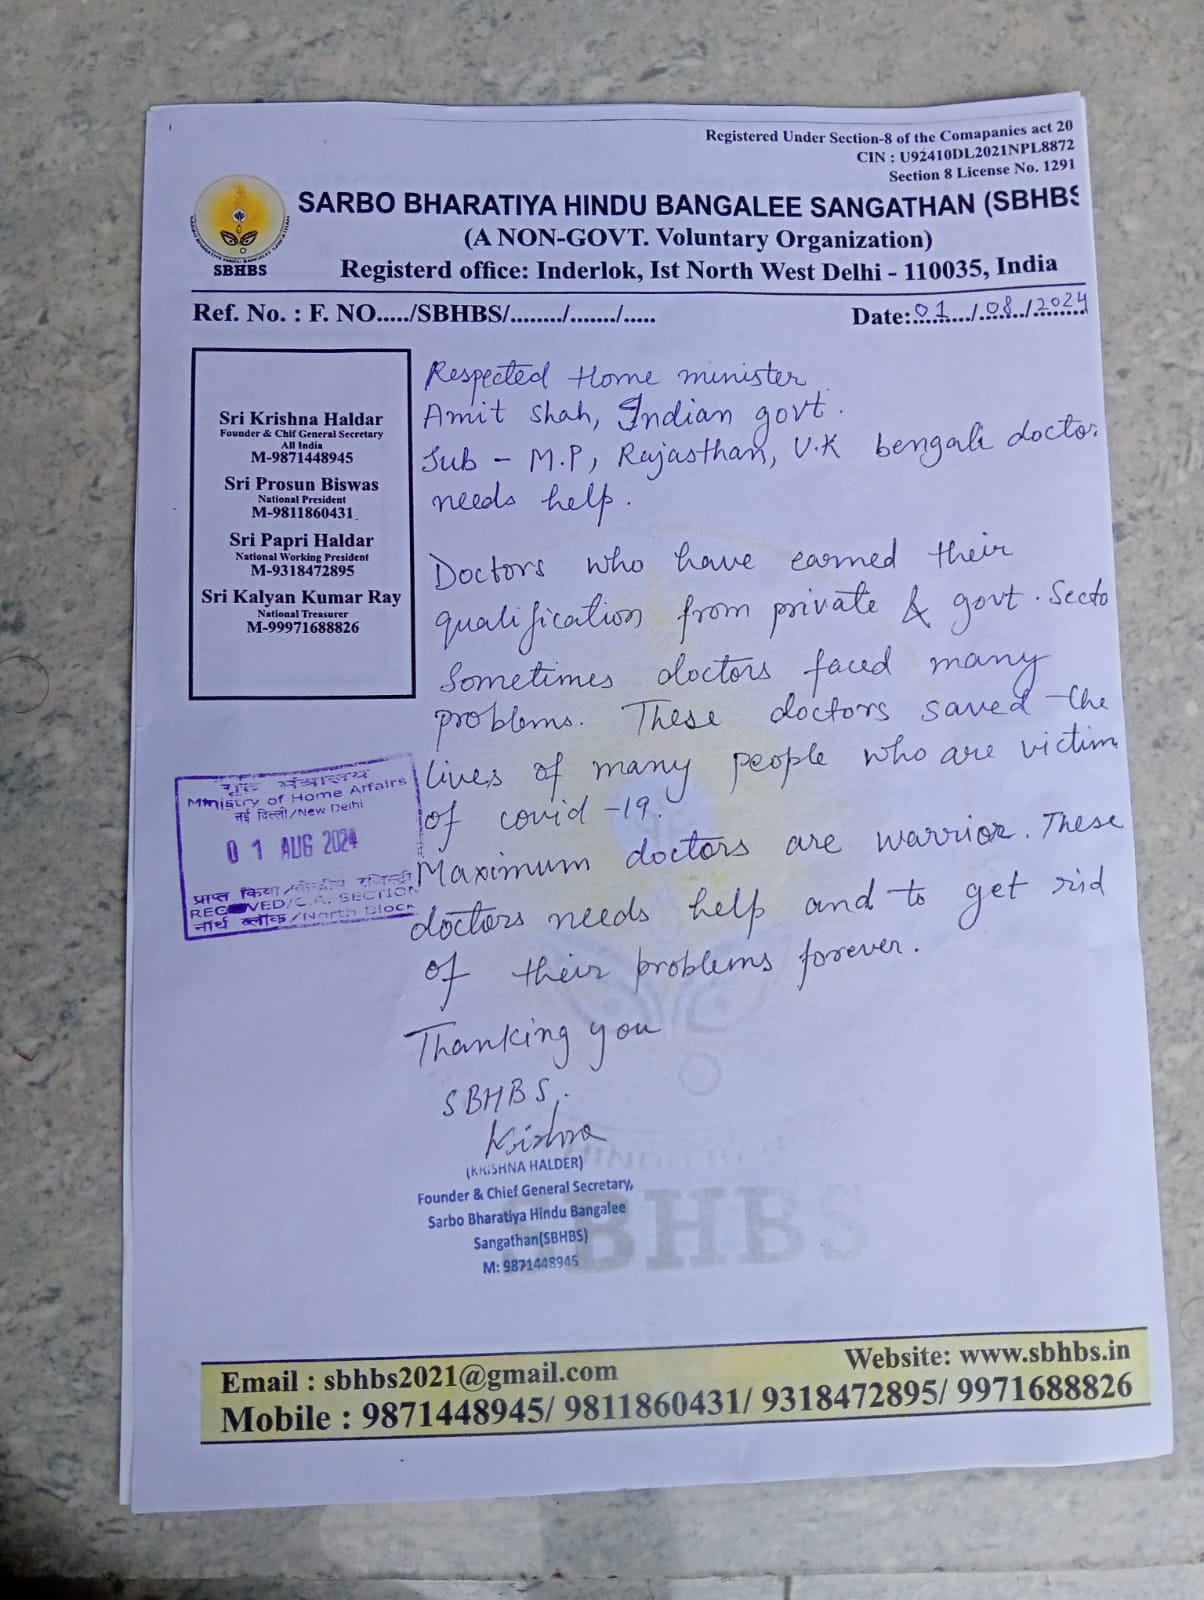 Registered Under Section-8 of the Comapanies act 20
CIN : U92410DL2021NPL8872
Section 8 License No. 1291
SARBO BHARATIYA HINDU BANGALEE SANGATHAN (SBHBS
(A NON-GOVT. Voluntary Organization)
Registerd office: Inderlok, Ist North West Delhi - 110035, India
SARBO BHARATIYA HINDU BANGALEE SANGATHAN
SBHBS
Ref. No. : F. NO...../SBHBS/......../......./.....
Date:01/08/2024
Sri Krishna Haldar
Founder & Chif General Secretary
All India
M-9871448945
Sri Prosun Biswas
National President
M-9811860431
Sri Papri Haldar
National Working President
M-9318472895
Sri Kalyan Kumar Ray
National Treasurer
M-99971688826
Respected Home minister
Amit Shah, Indian govt.
Sub - M.P, Rajasthan, U.K bengali doctor
needs help.
Doctors who have earned their
qualification from private & govt. Secto
Sometimes doctors faced many
problems. These doctors saved the
lives of many people who are victim
of covid -19.
Maximum doctors are warrior. These
doctors needs help and to get rid
of their problems forever.
Thanking you
SBHBS.
Krishna
(KRISHNA HALDER)
Founder & Chief General Secretary,
Sarbo Bharatiya Hindu Bangalee
Sangathan(SBHBS)
M: 9871448945
गृह मंत्रालय
Ministry of Home Affairs
नई दिल्ली/New Delhi
01 AUG 2024
प्राप्त किया/केन्द्रीय रजिस्ट्री
RECEIVED/C.R. SECTION
नार्थ ब्लॉक/North Block
SBHBS
Email : sbhbs2021@gmail.com
Website: www.sbhbs.in
Mobile : 9871448945/ 9811860431/ 9318472895/ 9971688826